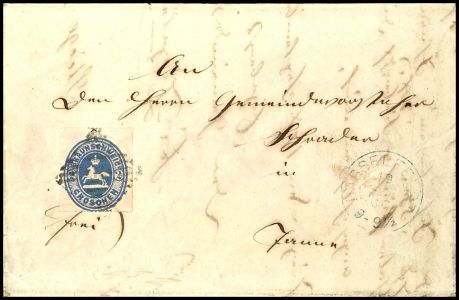 An
den Herrn Gemeindevorsteher
Schrader
in
Tanne
frei
BRAUNSCHWEIG
GROSCHEN
HASSELF
9-9½